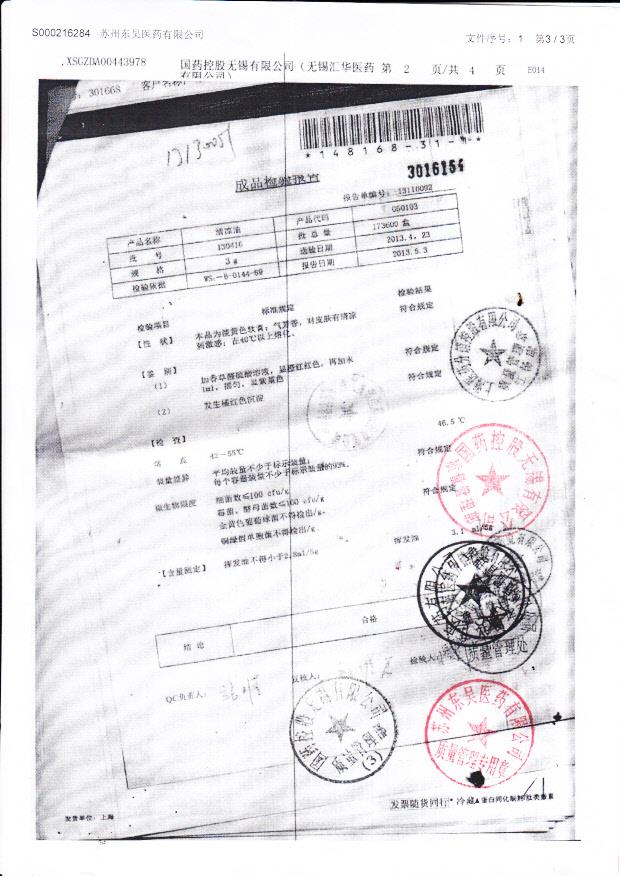 S000216284 苏州东吴医药有限公司 文件序号：1 第3/3页
.XSGZDA00443978 国药控股无锡有限公司（无锡汇华医药 第 2 页/共 4 页 E014
有限公司）
301668 客户名称：
1313005
*148168-31-
3016154
成品检验报告
报告单编号：13110092
产品名称 清凉油 产品代码 G50103
批 号 130416 批 总 量 173600 盒
规 格 3 g 送验日期 2013.4.23
检验依据 WS--B-0144-89 报告日期 2013.5.3
检验项目 标准规定 检验结果
【性 状】 本品为淡黄色软膏；气芳香，对皮肤有清凉 符合规定
刺激感；在40℃以上熔化。
【鉴 别】
(1) 加香草醛硫酸溶液，显橙红色，再加水 符合规定
1ml，摇匀，显紫蓝色
(2) 发生橘红色沉淀 符合规定
【检 查】
熔 点 42-55℃ 46.5℃
装量差异 平均装量不少于标示装量； 符合规定
每个容器装量不少于标示装量的93%.
微生物限度 细菌数≤100 cfu/g 符合规
霉菌、酵母菌数≤100 cfu/g
金黄色葡萄球菌不得检出/g.
铜绿假单胞菌不得检出/g.
【含量测定】 挥发油不得小于2.8ml/5g 挥发油 3. ml/5g
结 论 合格
QC负责人： 复核人： 检验人
国药控股无锡有限公司
质量管理
(3)
国药控股无锡有限公司
质量管理处
苏州东吴医药有限公司
质量管理专用章
发票随货同行* 冷藏▲蛋白同化制剂/肽类激素
发货单位：上海